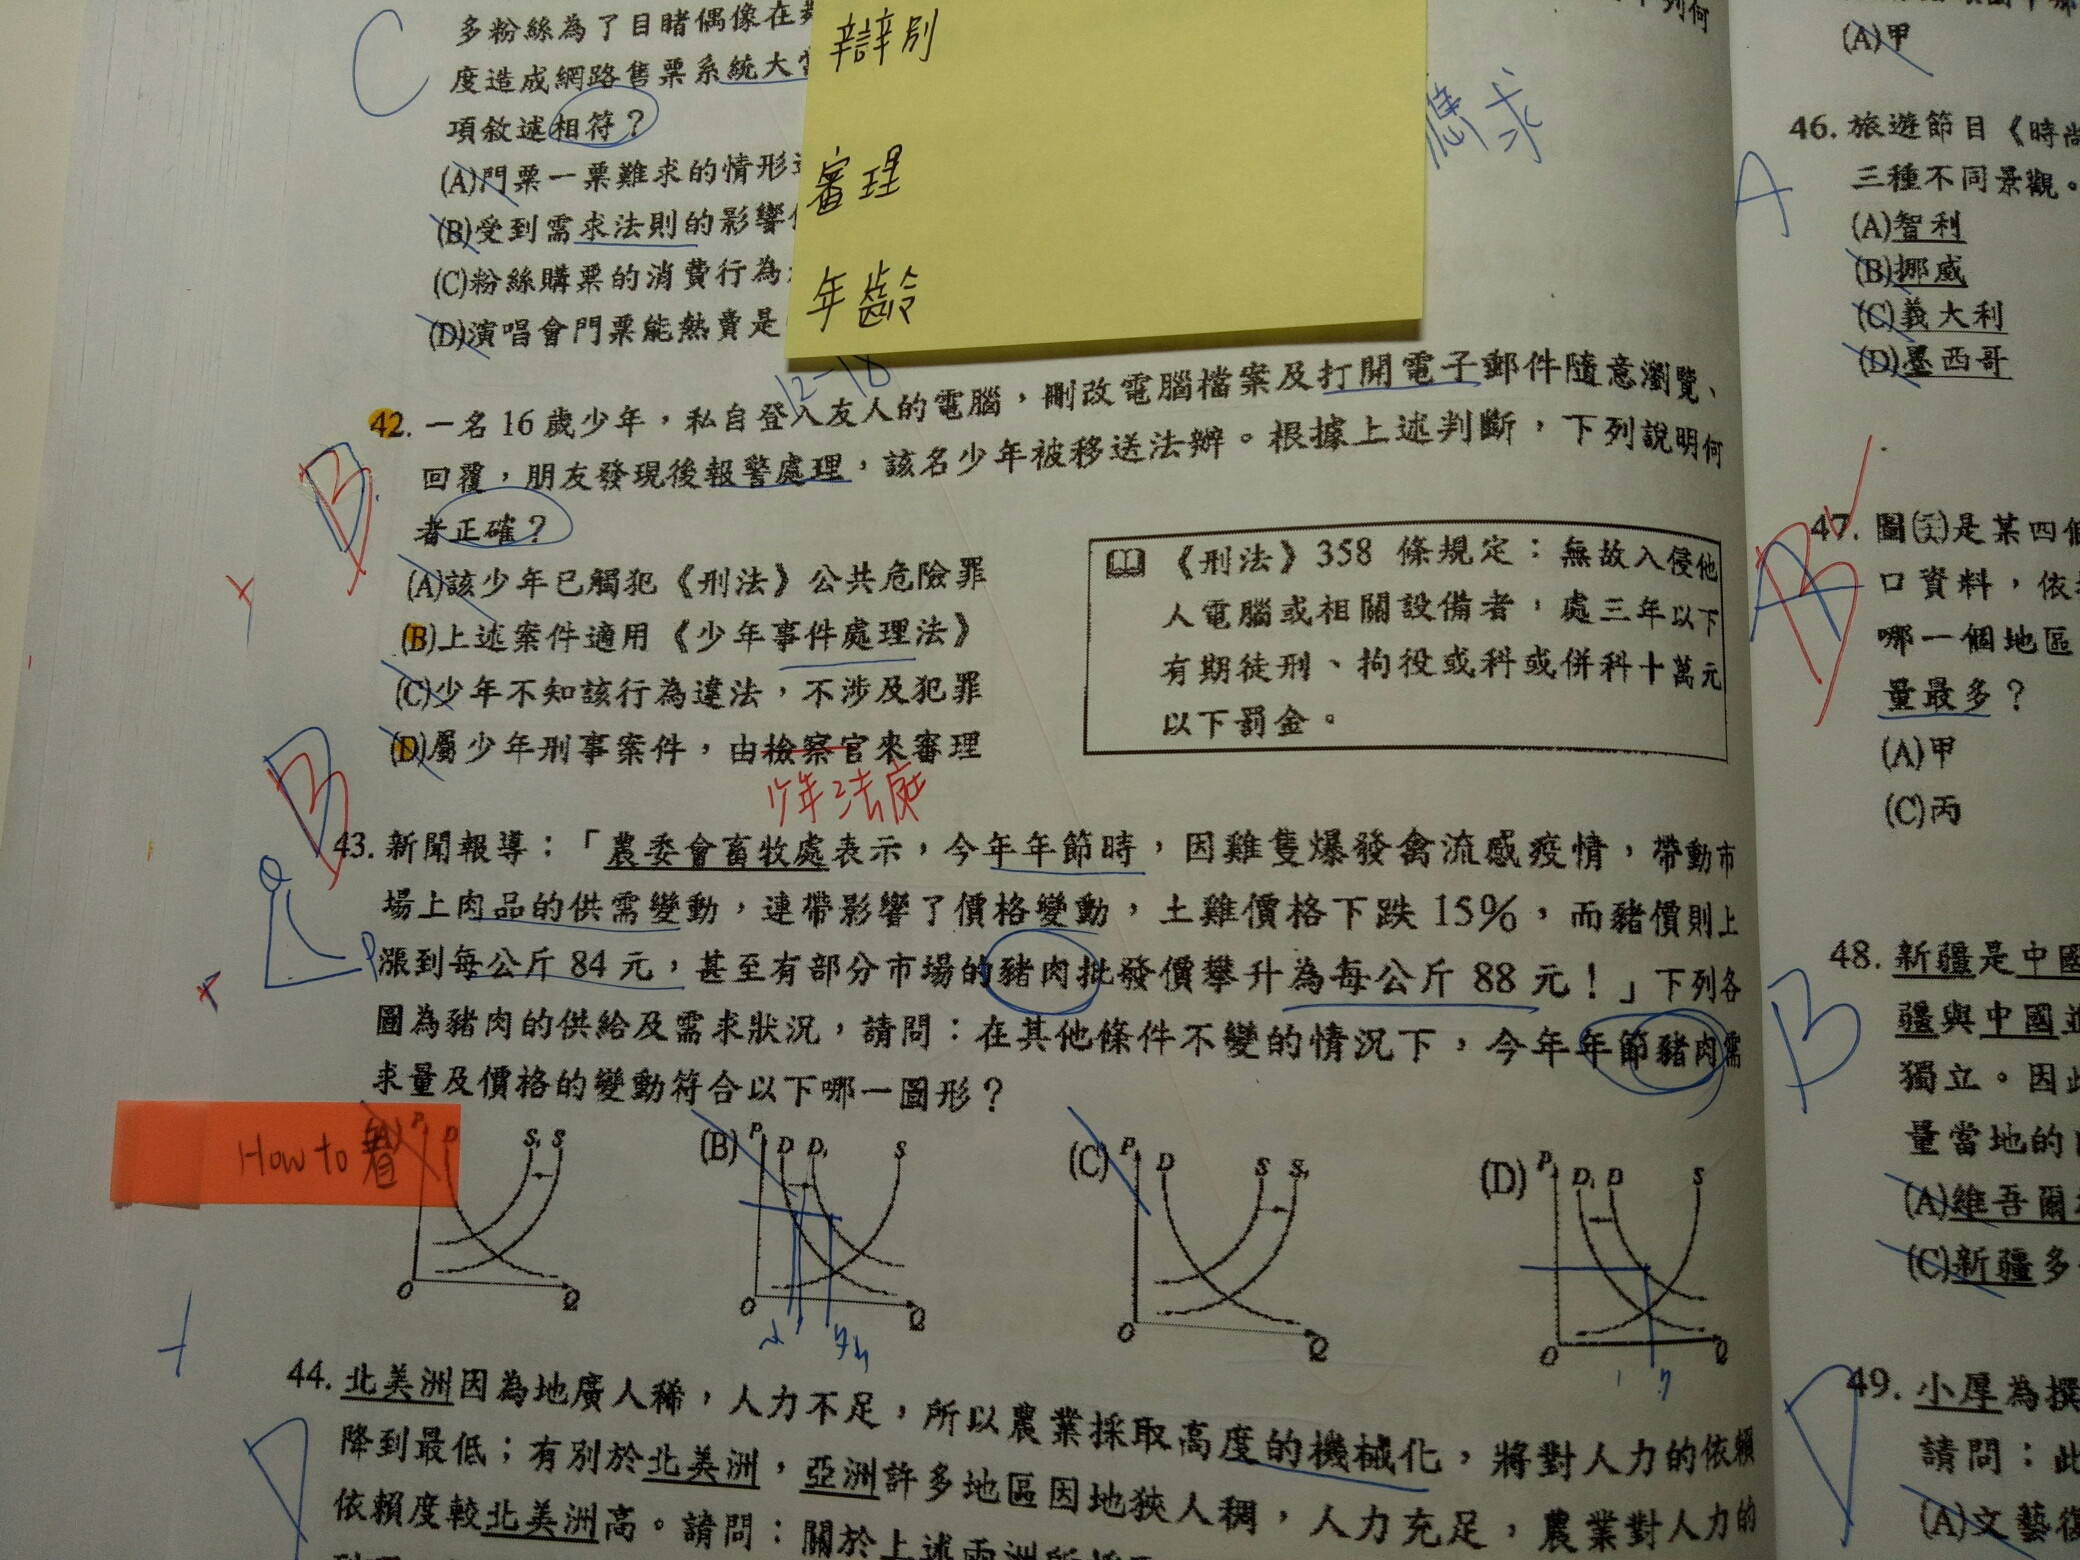 多粉絲為了目睹偶像在
度造成網路售票系統大
項敘述相符？
(A)門票一票難求的情形
(B)受到需求法則的影響
(C)粉絲購票的消費行為
(D)演唱會門票能熱賣是
C
辯別
審理
年齡
應求
12-18
42. 一名 16 歲少年，私自登入友人的電腦，刪改電腦檔案及打開電子郵件隨意瀏覽、
回覆，朋友發現後報警處理，該名少年被移送法辦。根據上述判斷，下列說明何
者正確？
(A)該少年已觸犯《刑法》公共危險罪
(B)上述案件適用《少年事件處理法》
(C)少年不知該行為違法，不涉及犯罪
(D)屬少年刑事案件，由檢察官來審理
少年法庭
B
《刑法》358 條規定：無故入侵他
人電腦或相關設備者，處三年以下
有期徒刑、拘役或科或併科十萬元
以下罰金。
B
43. 新聞報導：「農委會畜牧處表示，今年年節時，因雞隻爆發禽流感疫情，帶動市
場上肉品的供需變動，連帶影響了價格變動，土雞價格下跌 15%，而豬價則上
漲到每公斤 84 元，甚至有部分市場的豬肉批發價攀升為每公斤 88 元！」下列各
圖為豬肉的供給及需求狀況，請問：在其他條件不變的情況下，今年年節豬肉需
求量及價格的變動符合以下哪一圖形？
Q
P
How to 看
P D S₁ S
O Q
(B) P D D₁ S
O Q
(C) P D S S₁
O Q
(D) P D₁ D S
O Q
44. 北美洲因為地廣人稀，人力不足，所以農業採取高度的機械化，將對人力的依賴
降到最低；有別於北美洲，亞洲許多地區因地狹人稠，人力充足，農業對人力的
依賴度較北美洲高。請問：關於上述兩洲所
D
(A)甲
46. 旅遊節目《時尚
三種不同景觀。
(A)智利
(B)挪威
(C)義大利
(D)墨西哥
A
47. 圖(六)是某四個
口資料，依
哪一個地區
量最多？
(A)甲
(C)丙
B
48. 新疆是中國
疆與中國
獨立。因此
量當地的
(A)維吾爾
(C)新疆多
B
49. 小厚為撰
請問：此
(A)文藝復
D